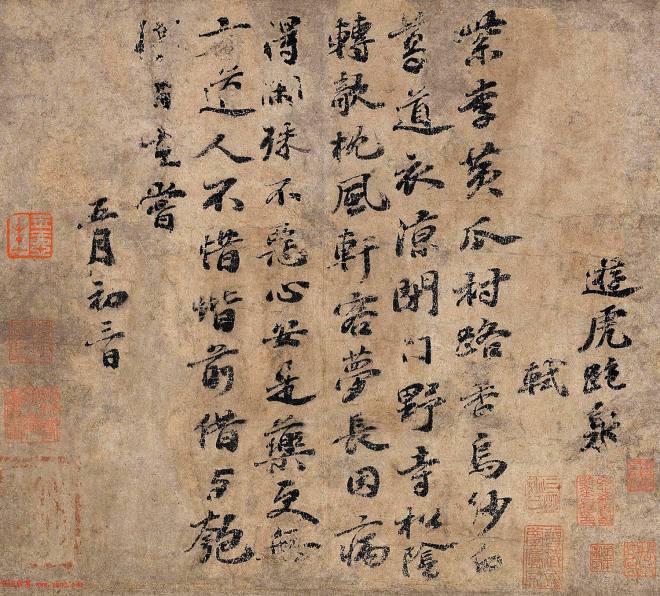 遊虎跑泉
軾
紫李黄瓜村路香烏紗白
葛道衣涼閉門野寺松陰
轉欹枕風軒客夢長因病
得閑殊不惡心安是藥更無
方道人不惜階前借与匏
樽自在嘗
五月初三日